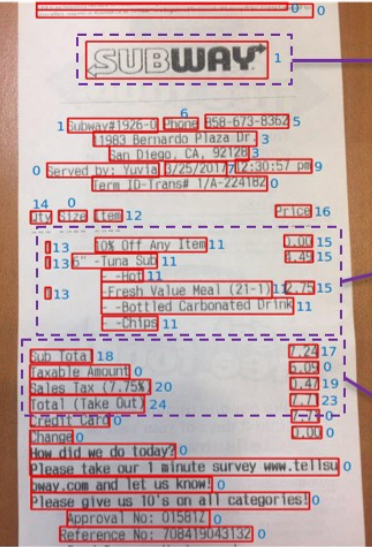 0
0
SUBWAY 1
6
1 Subway#1926-0 Phone 858-673-8362 5
11983 Bernardo Plaza Dr. 3
San Diego, CA, 92128 3
0 Served by: Yuvia 3/25/2017 7 12:30:57 pm 9
Term ID-Trans# 1/A-224182 0
14 0
Qty Size Item 12 Price 16
13 10% Off Any Item 11 0.00 15
13 6" -Tuna Sub 11 4.49 15
- -Hot 11
13 -Fresh Value Meal (21-1) 11 2.75 15
- -Bottled Carbonated Drink 11
- -Chips 11
Sub Total 18 7.24 17
Taxable Amount 0 6.09 0
Sales Tax (7.75% 20 0.47 19
Total (Take Out) 24 7.71 23
Credit Card 0 7.71 0
Change 0 0.00 0
How did we do today? 0
Please take our 1 minute survey www.tellsu 0
bway.com and let us know! 0
Please give us 10's on all categories! 0
Approval No: 01581Z 0
Reference No: 708419043132 0